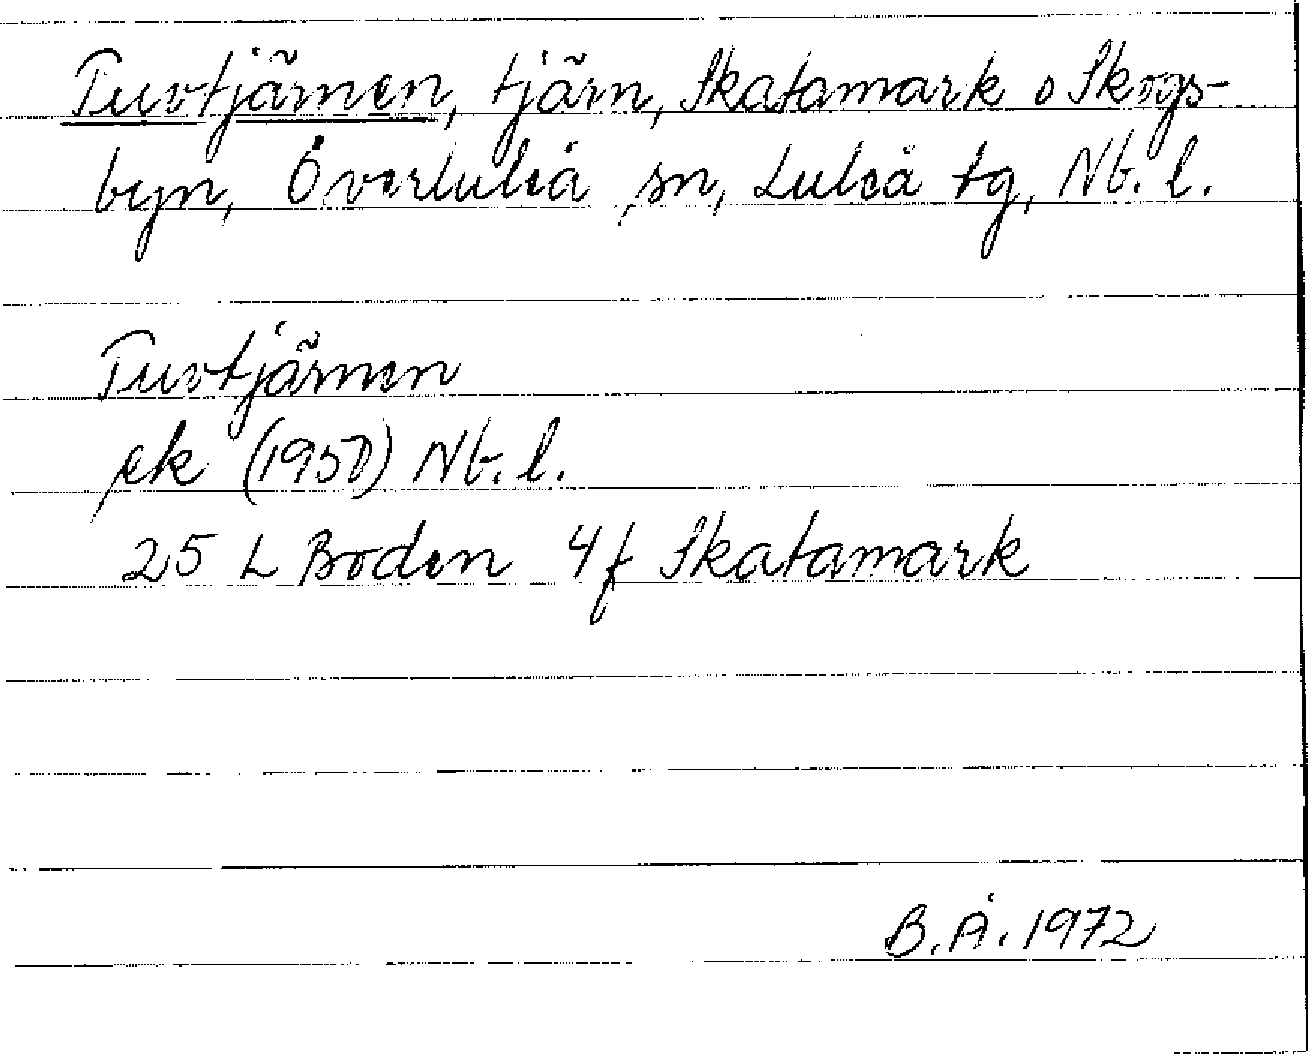 Tuvtjärnen, tjärn, Skatamark o Skogs-
byn, Överluleå sn, Luleå tg, Nb. l.
Tuvtjärnen
ek (1950) Nb. l.
25 L Boden 4f Skatamark
B.Å. 1972